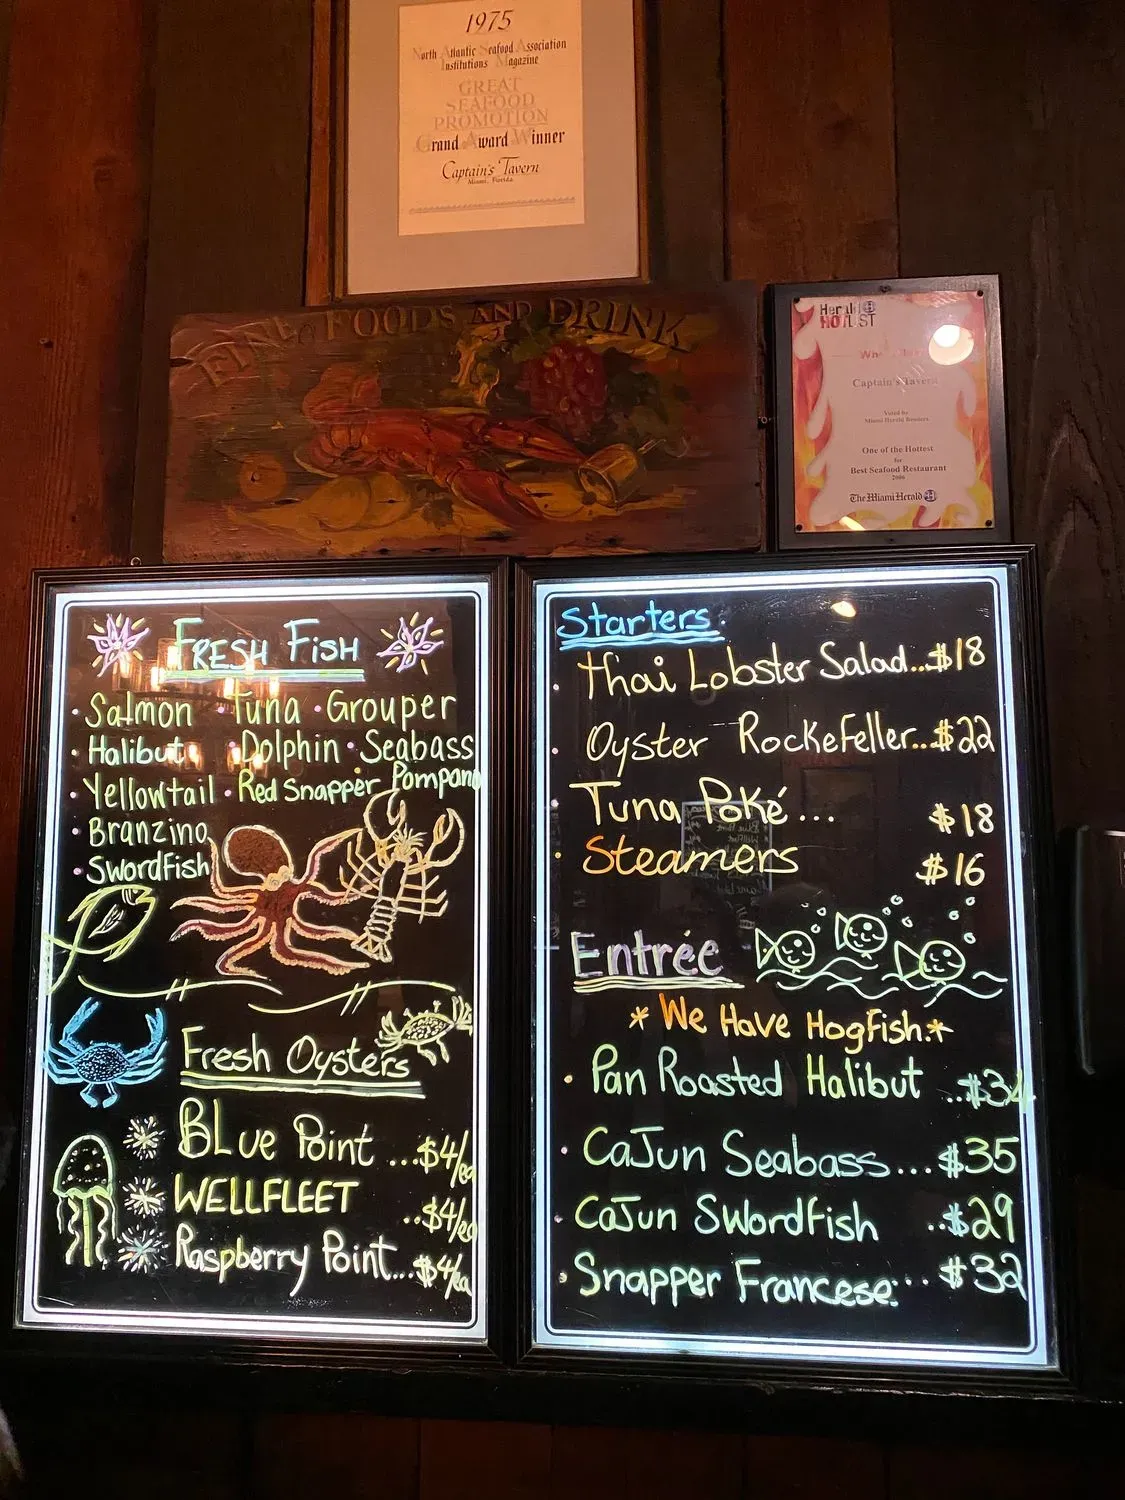 1975
North Atlantic Seafood Association
Institutions Magazine
GREAT
SEAFOOD
PROMOTION
Grand Award Winner
Captain's Tavern
Miami, Florida
FINE FOODS AND DRINK
Herald
HOTLIST
Captain's Tavern
Voted by
Miami Herald Readers
One of the Hottest
for
Best Seafood Restaurant
2006
The Miami Herald
FRESH FISH
· Salmon · Tuna · Grouper
· Halibut · Dolphin · Seabass
· Yellowtail · Red Snapper · Pompano
· Branzino
· Swordfish
Fresh Oysters
BLue Point ...$4/ea
WELLFLEET ..$4/ea
Raspberry Point...$4/ea
Starters:
· Thai Lobster Salad...$18
· Oyster Rockefeller..$22
· Tuna Poké... $18
· Steamers $16
Entrée
* We Have Hogfish.*
· Pan Roasted Halibut ...$34
· Cajun Seabass...$35
· Cajun Swordfish ..$29
· Snapper Francese:... $32